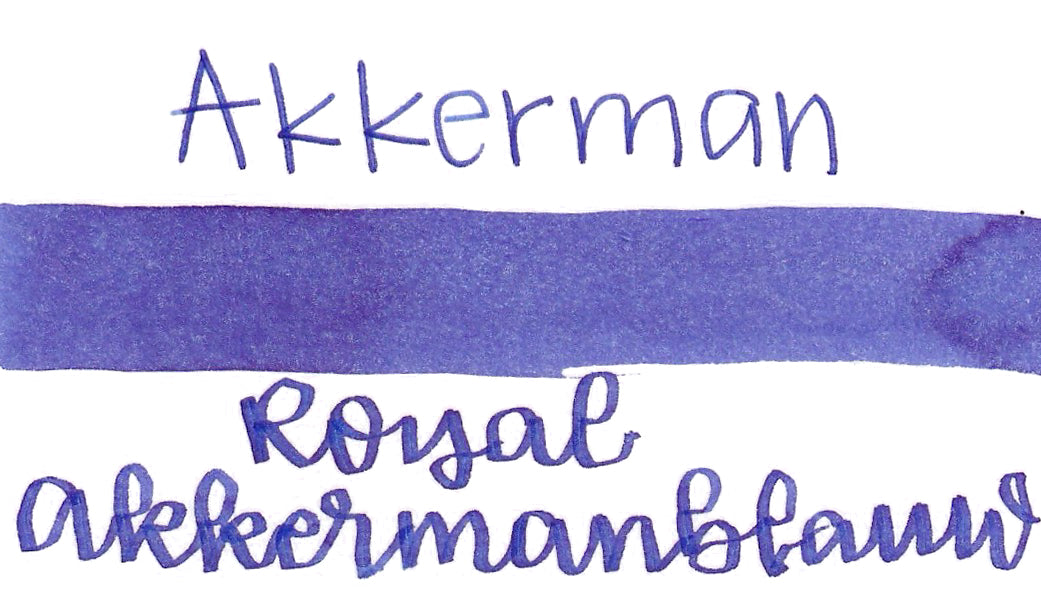 Akkerman
Royal
Akkermanblauw